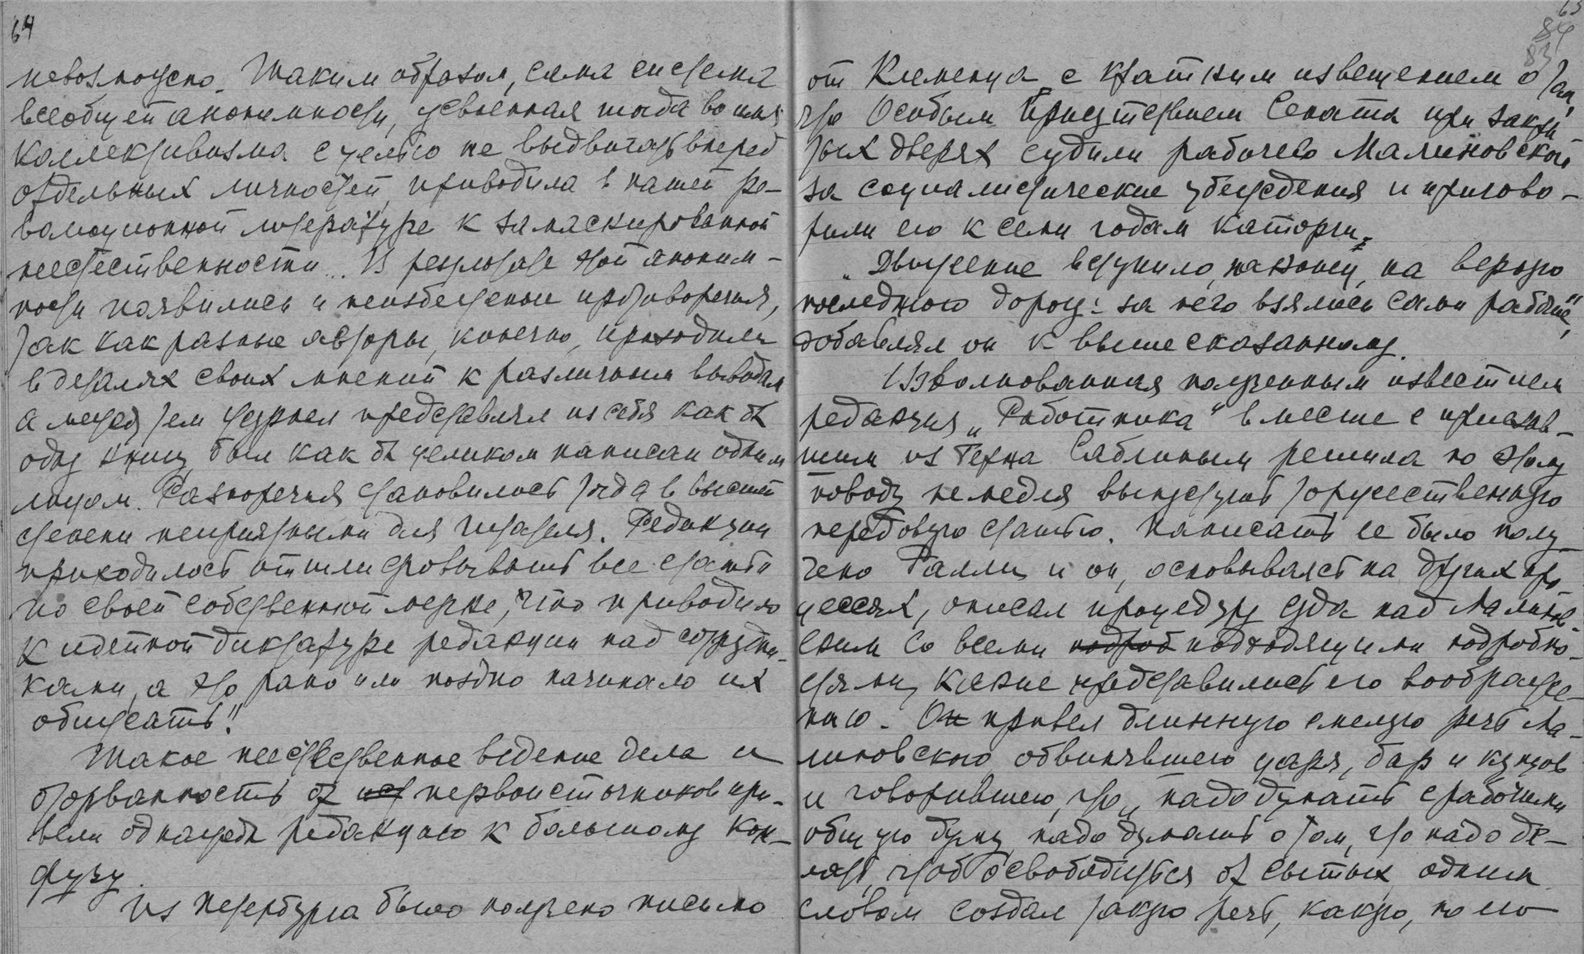 64
невозможно. Таким образом, сама система
всеобщей анонимности, усвоенная тогда во имя
коллективизма с целью не выдвигать вперед
отдельных личностей, приводила в нашей ре-
волюционной литературе к замаскированной
неестественности... В результате этой аноним-
ности появились и неизбежные противоречия,
так как разные авторы, конечно, приходили
в деталях своих мнений к различным выводам
а между тем журнал представлял из себя как бы
одну книгу, был как бы целиком написан одним
лицом. Разноречия становились тогда в высшей
степени неприятными для читателя. Редакции
приходилось отшлифовывать все статьи
по своей собственной мерке, что приводило
к идейной диктатуре редакции над сотрудни-
ками, а это рано или поздно начинало их
обижать!!
Такое неестественное ведение дела и
оторванность от первоисточников при-
вели однажды редакцию к большому кон-
фузу.
Из Петербурга было получено письмо
65
84
83
от Клеменца с кратким извещением о том,
что Особым Присутствием Сената при закры-
тых дверях судили рабочего Малиновского
за социалистические убеждения и пригово-
рили его к семи годам каторги.
„Движение вступило, наконец, на верную
последнюю дорогу: за него взялись сами рабочие",
добавлял он к вышесказанному.
Взволнованная полученным известием
редакция „Работника" вместе с приехав-
шим из Берна Саблиным решила по этому
поводу немедля выпустить торжественную
передовую статью. Написать ее было пору-
чено Ралли, и он, основываясь на других про-
цессах, описал процедуру суда над Малинов-
ским со всеми подходящими подробно-
стями, какие представились его воображе-
нию. Он привел длинную смелую речь Ма-
линовского обвинявшего царя, бар и купцов
и говорившего, что „надо думать с рабочими
общую думу, надо думать о том, что надо де-
лать, чтоб освободиться от сытых одним
словом создал такую речь, какую, по его